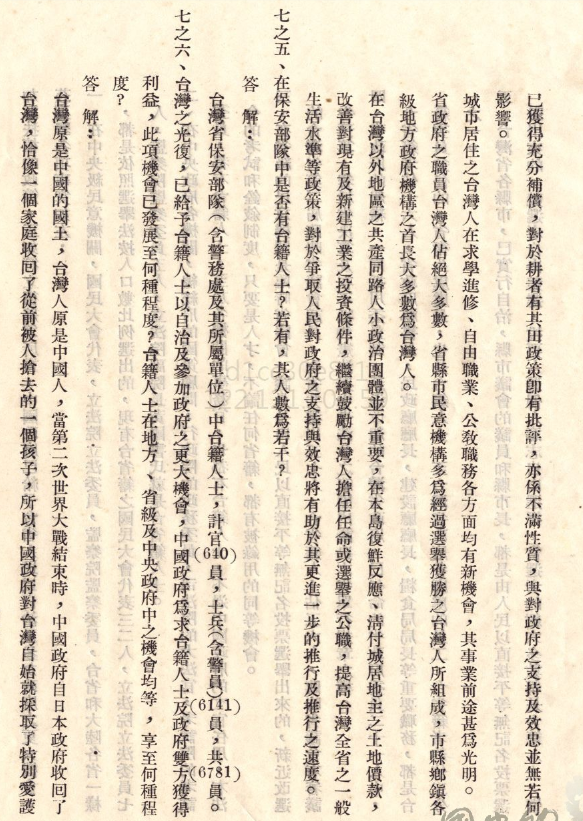 已獲得充分補償，對於耕者有其田政策卽有批評，亦係不滿性質，與對政府之支持及效忠並無若何
影響。
城市居住之台灣人在求學進修、自由職業、公敎職務各方面均有新機會，其事業前途甚爲光明。
省政府之職員台灣人佔絕大多數，省縣市民意機構多爲經過選舉獲勝之台灣人所組成，市縣鄉鎭各
級地方政府機構之首長大多數爲台灣人。
在台灣以外地區之共產同路人小政治團體並不重要，在本島復鮮反應、淸付城居地主之土地價款，
改善對現有及新建工業之投資條件，繼續鼓勵台灣人擔任任命或選舉之公職，提高台灣全省之一般
生活水準等政策，對於爭取人民對政府之支持與效忠將有助於其更進一步的推行及推行之速度。
七之五、在保安部隊中是否有台籍人士？若有，其人數爲若干？
答　解：
台灣省保安部隊（含警務處及其所屬單位）中台籍人士，計官(640)員，士兵（含警員）(6141)員，共(6781)員。
七之六、台灣之光復，已給予台籍人士以自治及參加政府之更大機會，中國政府爲求台籍人士及政府雙方獲得
利益，此項機會已發展至何種程度？台籍人士在地方、省級及中央政府中之機會均等，享至何種程
度？
答　解：
台灣原是中國的國土，台灣人原是中國人，當第二次世界大戰結束時，中國政府自日本政府收回了
台灣，恰像一個家庭收回了從前被人搶去的一個孩子，所以中國政府對台灣自始就採取了特別愛護